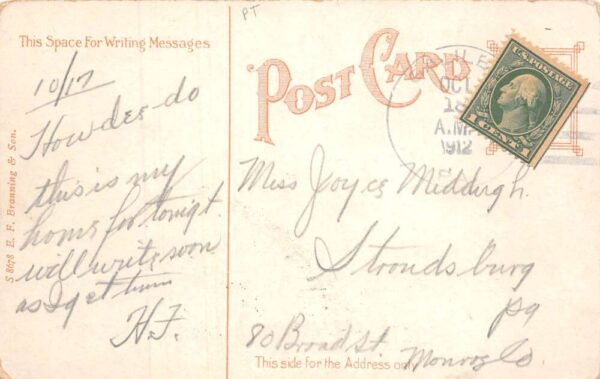 PT
This Space For Writing Messages
POST CARD
10/17
Howdee-do
this is my
home for tonigt.
will write soon
as I get time
H.F.
S 8678 E. F. Branning & Son.
OCT
18
A.M.
1912
U.S. POSTAGE
1 CENT 1
Miss Joyce Middugh.
Stroudsburg
Pa
80 Broad St.
Monroe Co.
This side for the Address only